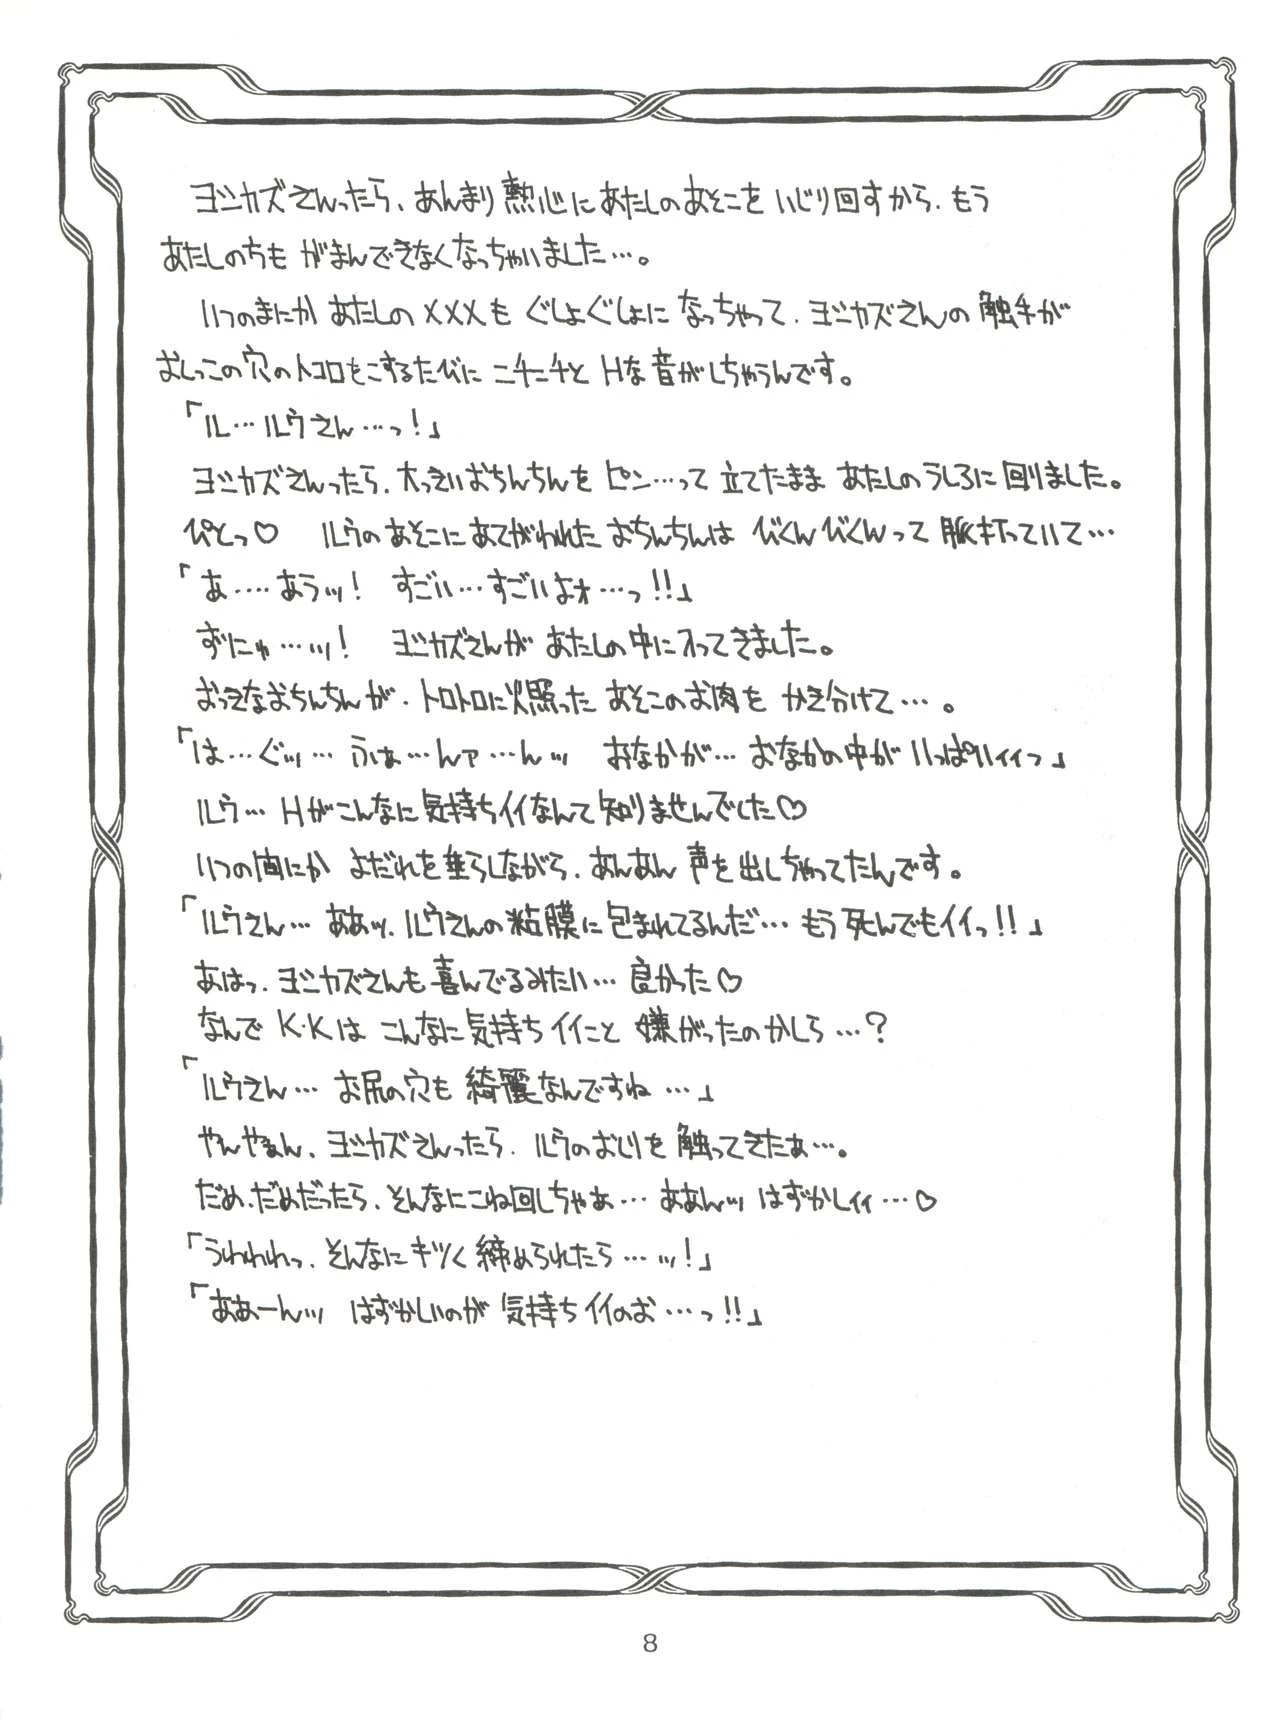 ヨシカズさんったら、あんまり熱心にあたしのあそこをいじり回すから、もう
あたしのちもがまんできなくなっちゃいました…。
いつのまにかあたしのXXXもぐしょぐしょになっちゃって、ヨシカズさんの触手が
おしっこの穴のトコロをこするたびにニチニチとHな音がしちゃうんです。
「ル…ルウさん…っ!」
ヨシカズさんったら、大っきいおちんちんをピン…って立てたままあたしのうしろに回りました。
ぴとっ♡ ルウのあそこにあてがわれたおちんちんはびくんびくんって脈打っていて…
「あ‥‥あうッ! すごい…すごいよォ…っ!!」
ずにゅ…ッ! ヨシカズさんがあたしの中に入ってきました。
おっきなおちんちんが、トロトロに火照ったあそこのお肉をかき分けて…。
「は…ぐッ… ふぁ…んァ…んッ おなかが…おなかの中がいっぱいィィっ」
ルウ…Hがこんなに気持ちイイなんて知りませんでした♡
いつの間にかよだれを垂らしながら、あんあん声を出しちゃってたんです。
「ルウさん…ああッ、ルウさんの粘膜に包まれてるんだ…もう死んでもイイっ!!」
あはっ、ヨシカズさんも喜んでるみたい…良かった♡
なんでK・Kはこんなに気持ちイイこと嫌がったのかしら…?
「ルウさん…お尻の穴も綺麗なんですね…」
やんやぁん、ヨシカズさんったら、ルウのおしりを触ってきたぁ…。
だめ、だめだったら、そんなにこね回しちゃぁ…ああんッ はずかしィィ…♡
「うわわわっ、そんなにキツく締められたら…ッ!」
「ああーんッ はずかしいのが気持ちイイのぉ…っ!!」
8